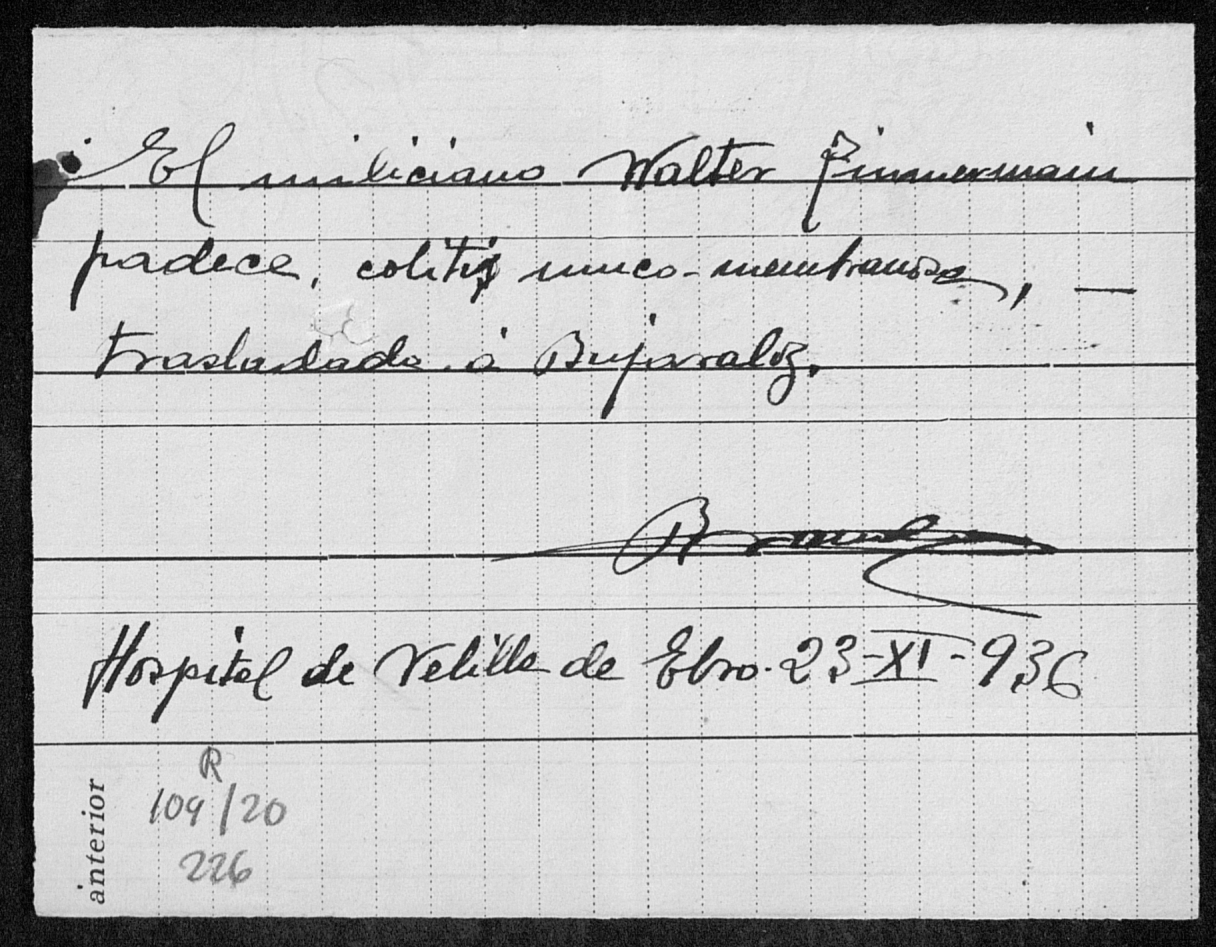 El miliciano Walter Zimmermann
padece, colitis muco-membranosa, —
trasladado á Bujaraloz.
Hospital de Velilla de Ebro. 23-XI-936
R
109/20
226
anterior